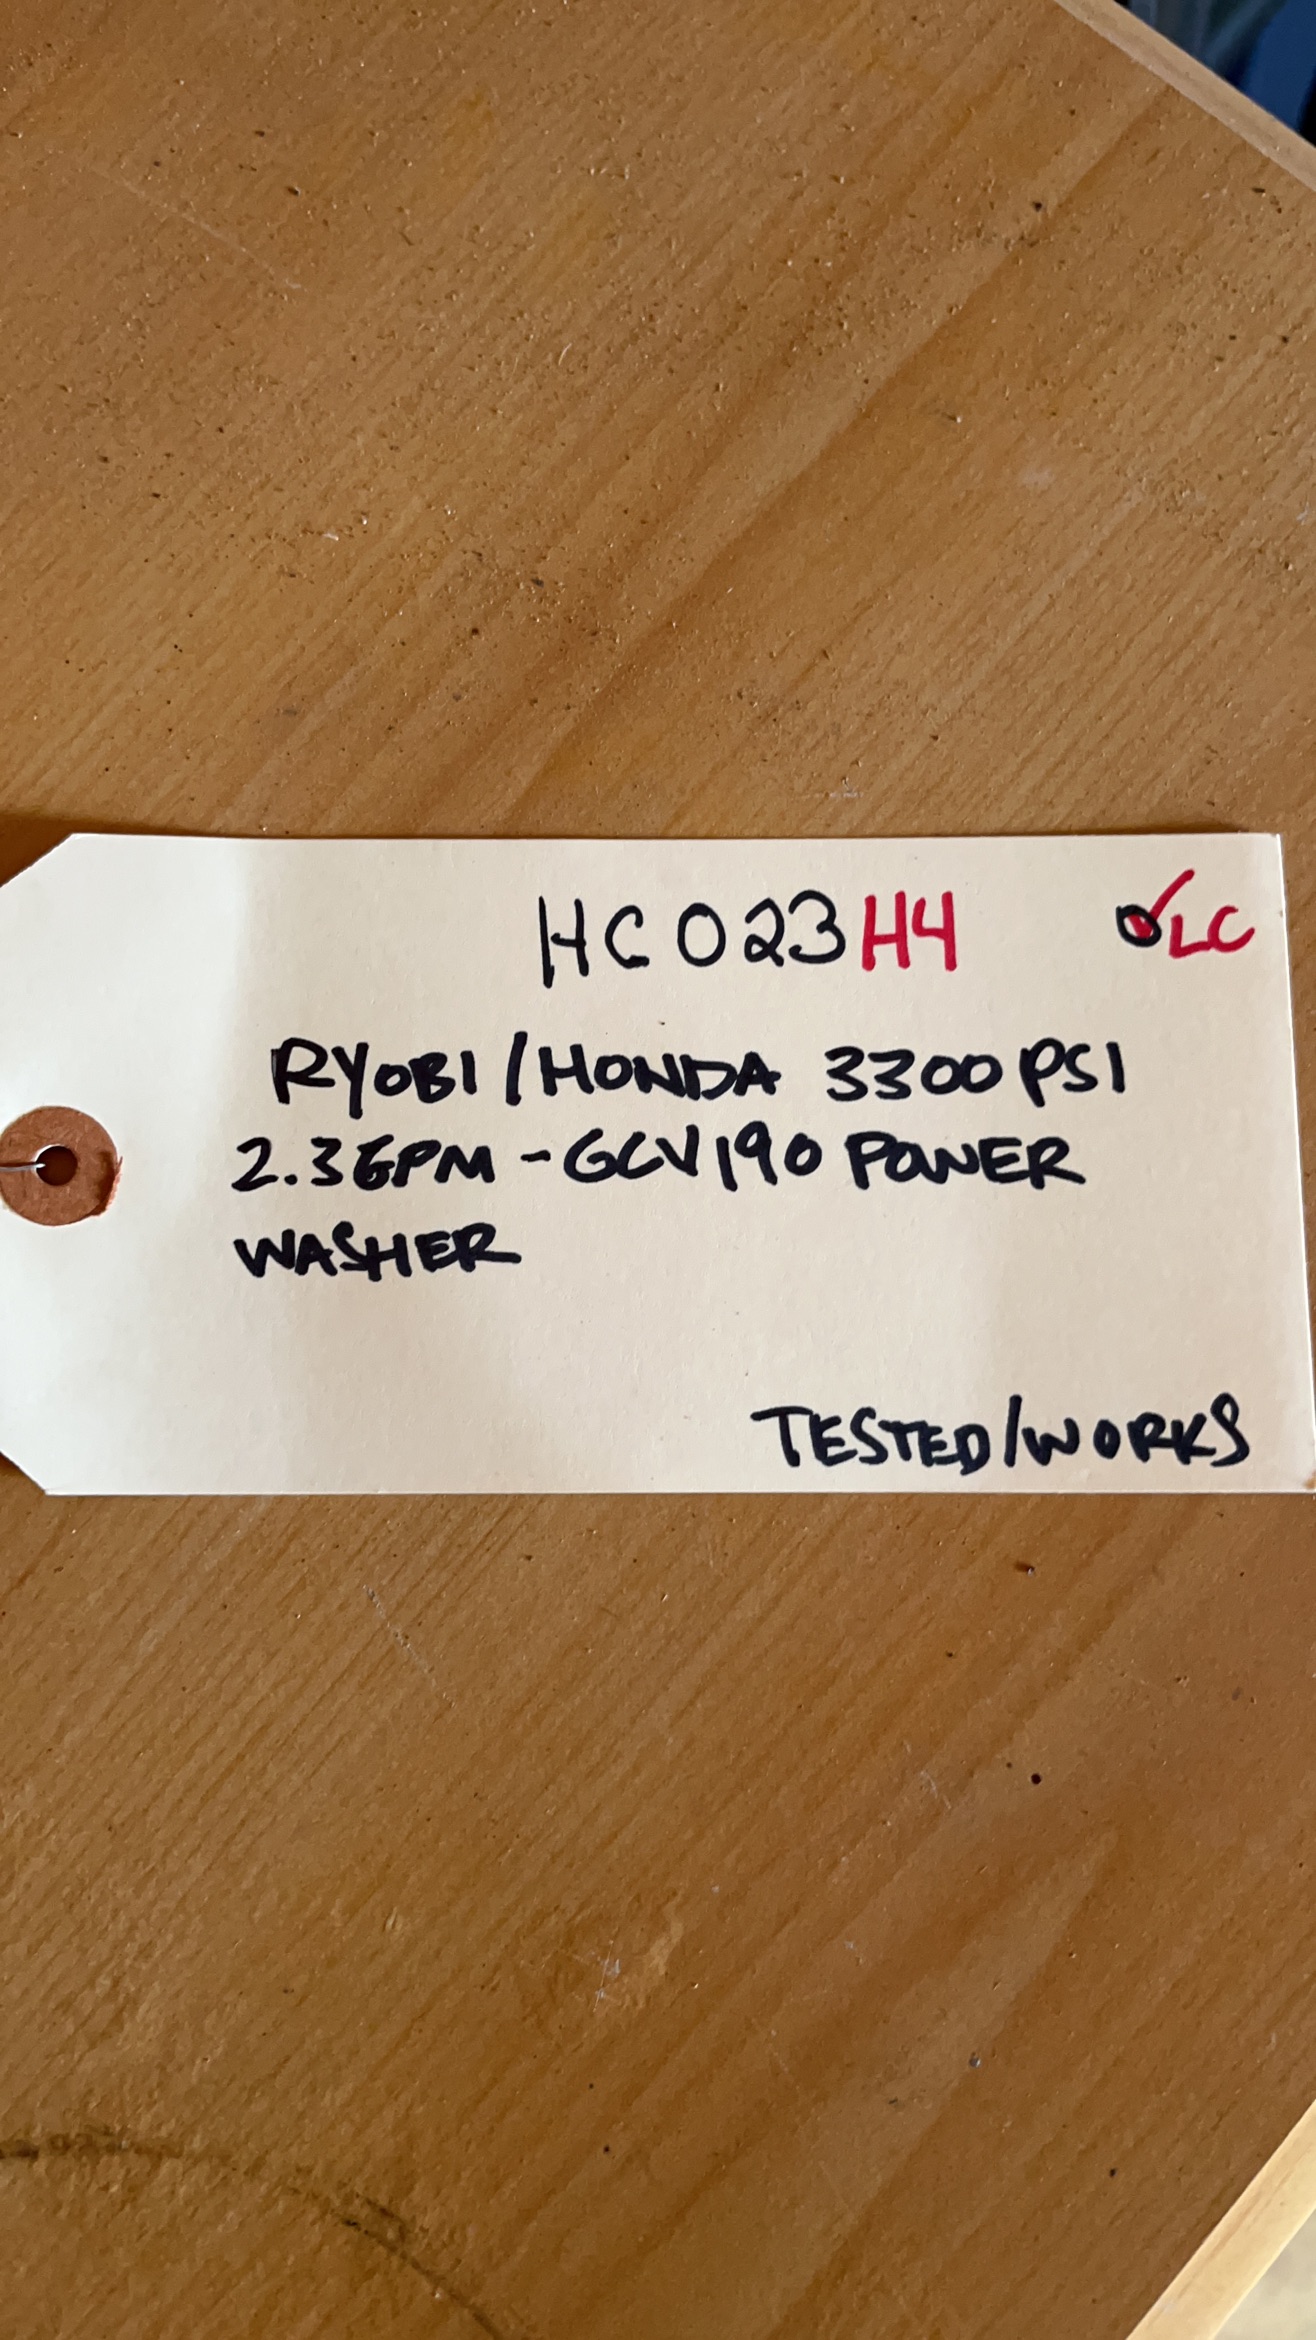 HC023H4 ✓LC
RYOBI/HONDA 3300 PSI
2.3 GPM - GCV190 POWER
WASHER
TESTED/WORKS